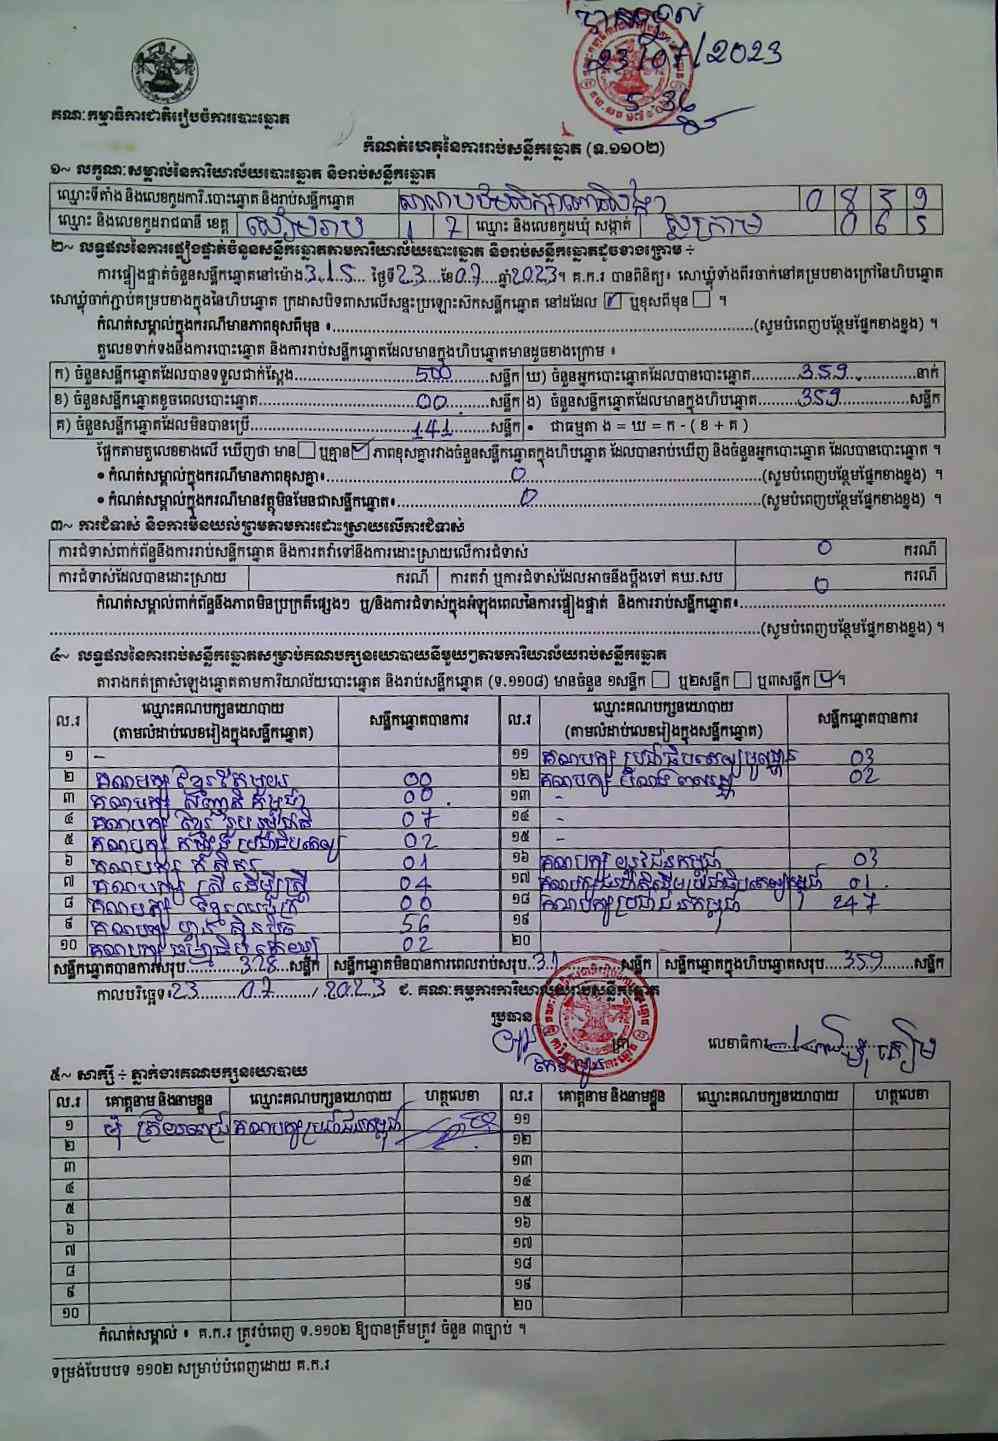 បានទទួល
23/07/2023
5:36
គណៈកម្មាធិការជាតិរៀបចំការបោះឆ្នោត
កំណត់ហេតុនៃការរាប់សន្លឹកឆ្នោត (ទ.១១០២)
១~ លក្ខណៈសម្គាល់នៃការិយាល័យបោះឆ្នោត និងរាប់សន្លឹកឆ្នោត
ឈ្មោះទីតាំង និងលេខកូដការិ.បោះឆ្នោត និងរាប់សន្លឹកឆ្នោត 0 8 5 9
ឈ្មោះ និងលេខកូដរាជធានី ខេត្ត សៀមរាប 1 7 ឈ្មោះ និងលេខកូដឃុំ សង្កាត់ សក្រាម 0 6 5
២~ លទ្ធផលនៃការផ្ទៀងផ្ទាត់ចំនួនសន្លឹកឆ្នោតតាមការិយាល័យបោះឆ្នោត និងរាប់សន្លឹកឆ្នោតដូចខាងក្រោម ÷
ការផ្ទៀងផ្ទាត់ចំនួនសន្លឹកឆ្នោតនៅម៉ោង 3:15 ថ្ងៃទី 23 ខែ 07 ឆ្នាំ 2023។ គ.ក.រ បានពិនិត្យ៖ សោឃ្លុំទាំងពីរចាក់នៅគម្របខាងក្រៅនៃហិបឆ្នោត
សោឃ្លុំចាក់ភ្ជាប់គម្របខាងក្នុងនៃហិបឆ្នោត ក្រដាសបិទពាសលើសន្ទះប្រឡោះស៊កសន្លឹកឆ្នោត នៅដដែល ☑ ឬខុសពីមុន ☐ ។
កំណត់សម្គាល់ក្នុងករណីមានភាពខុសពីមុន ៖ (សូមបំពេញបន្ថែមផ្នែកខាងខ្នង) ។
តួលេខទាក់ទងនឹងការបោះឆ្នោត និងការរាប់សន្លឹកឆ្នោតដែលមានក្នុងហិបឆ្នោតមានដូចខាងក្រោម ៖
ក) ចំនួនសន្លឹកឆ្នោតដែលបានទទួលជាក់ស្តែង 500 សន្លឹក ឃ) ចំនួនអ្នកបោះឆ្នោតដែលបានបោះឆ្នោត 359 នាក់
ខ) ចំនួនសន្លឹកឆ្នោតខូចពេលបោះឆ្នោត 00 សន្លឹក ង) ចំនួនសន្លឹកឆ្នោតដែលមានក្នុងហិបឆ្នោត 359 សន្លឹក
គ) ចំនួនសន្លឹកឆ្នោតដែលមិនបានប្រើ 141 សន្លឹក • ជាធម្មតា ង = ឃ = ក - ( ខ + គ )
ផ្អែកតាមតួលេខខាងលើ ឃើញថា មាន ☐ ឬគ្មាន ☑ ភាពខុសគ្នារវាងចំនួនសន្លឹកឆ្នោតក្នុងហិបឆ្នោត ដែលបានរាប់ឃើញ និងចំនួនអ្នកបោះឆ្នោត ដែលបានបោះឆ្នោត ។
• កំណត់សម្គាល់ក្នុងករណីមានភាពខុសគ្នា៖ 0 (សូមបំពេញបន្ថែមផ្នែកខាងខ្នង) ។
• កំណត់សម្គាល់ក្នុងករណីមានវត្ថុមិនមែនជាសន្លឹកឆ្នោត៖ 0 (សូមបំពេញបន្ថែមផ្នែកខាងខ្នង) ។
៣~ ការជំទាស់ និងការមិនយល់ព្រមតាមការដោះស្រាយលើការជំទាស់
ការជំទាស់ពាក់ព័ន្ធនឹងការរាប់សន្លឹកឆ្នោត និងការតវ៉ាទៅនឹងការដោះស្រាយលើការជំទាស់ 0 ករណី
ការជំទាស់ដែលបានដោះស្រាយ ករណី ការតវ៉ា ឬការជំទាស់ដែលអាចនឹងប្តឹងទៅ គឃ.សប 0 ករណី
កំណត់សម្គាល់ពាក់ព័ន្ធនឹងភាពមិនប្រក្រតីផ្សេងៗ ឬ/និងការជំទាស់ក្នុងអំឡុងពេលនៃការផ្ទៀងផ្ទាត់ និងការរាប់សន្លឹកឆ្នោត៖
(សូមបំពេញបន្ថែមផ្នែកខាងខ្នង) ។
៤~ លទ្ធផលនៃការរាប់សន្លឹកឆ្នោតសម្រាប់គណបក្សនយោបាយនីមួយៗតាមការិយាល័យរាប់សន្លឹកឆ្នោត
តារាងកត់ត្រាសំឡេងឆ្នោតតាមការិយាល័យបោះឆ្នោត និងរាប់សន្លឹកឆ្នោត (ទ.១១០៨) មានចំនួន ១សន្លឹក ☐ ឬ២សន្លឹក ☐ ឬ៣សន្លឹក ☑។
ល.រ ឈ្មោះគណបក្សនយោបាយ (តាមលំដាប់លេខរៀងក្នុងសន្លឹកឆ្នោត) សន្លឹកឆ្នោតបានការ ល.រ ឈ្មោះគណបក្សនយោបាយ (តាមលំដាប់លេខរៀងក្នុងសន្លឹកឆ្នោត) សន្លឹកឆ្នោតបានការ
១ - ១១ គណបក្ស ប្រជាធិបតេយ្យមូលដ្ឋាន 03
២ គណបក្ស ខ្មែរតែមួយ 00 ១២ គណបក្ស 02
៣ គណបក្ស សញ្ជាតិកម្ពុជា 00 ១៣ -
៤ គណបក្ស ខ្មែររួបរួមជាតិ 07 ១៤ -
៥ គណបក្ស ប្រជាធិបតេយ្យ 02 ១៥ -
៦ គណបក្ស កសិករ 01 ១៦ គណបក្ស យុវជនកម្ពុជា 03
៧ គណបក្ស ស្រីដើម្បីស្ត្រី 04 ១៧ គណបក្ស 01
៨ គណបក្ស 00 ១៨ គណបក្សប្រជាជនកម្ពុជា 247
៩ គណបក្ស ហ៊្វុនស៊ិនប៉ិច 56 ១៩
១០ គណបក្ស ធម្មាធិបតេយ្យ 02 ២០
សន្លឹកឆ្នោតបានការសរុប 328 សន្លឹក សន្លឹកឆ្នោតមិនបានការពេលរាប់សរុប 31 សន្លឹក សន្លឹកឆ្នោតក្នុងហិបឆ្នោតសរុប 359 សន្លឹក
កាលបរិច្ឆេទ៖ 23 / 07 / 2023 ជ. គណៈកម្មការការិយាល័យរាប់សន្លឹកឆ្នោត
ប្រធាន
លេខាធិការ
៥~ សាក្សី ÷ ភ្នាក់ងារគណបក្សនយោបាយ
ល.រ គោត្តនាម និងនាមខ្លួន ឈ្មោះគណបក្សនយោបាយ ហត្ថលេខា ល.រ គោត្តនាម និងនាមខ្លួន ឈ្មោះគណបក្សនយោបាយ ហត្ថលេខា
១ គណបក្សប្រជាជនកម្ពុជា ១១
២ ១២
៣ ១៣
៤ ១៤
៥ ១៥
៦ ១៦
៧ ១៧
៨ ១៨
៩ ១៩
១០ ២០
កំណត់សម្គាល់ ៖ គ.ក.រ ត្រូវបំពេញ ទ.១១០២ ឱ្យបានត្រឹមត្រូវ ចំនួន ៣ច្បាប់ ។
ទម្រង់បែបបទ ១១០២ សម្រាប់បំពេញដោយ គ.ក.រ